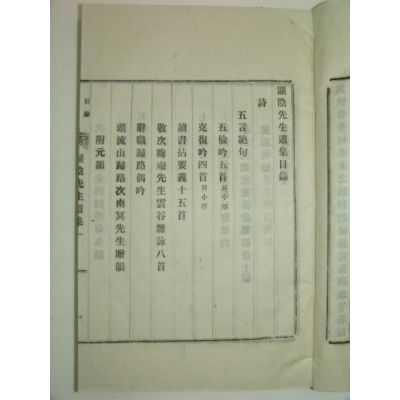 湖陰先生遺集目錄
詩
五言絶句
五倫吟五首 幷小序
克復吟四首 幷小序
讀書拈要義十五首
敬次晦庵先生雲谷雜詠八首
辭職歸路偶吟
頭流山歸路次南冥先生贈韻
附元韻
目錄
湖陰先生遺集一